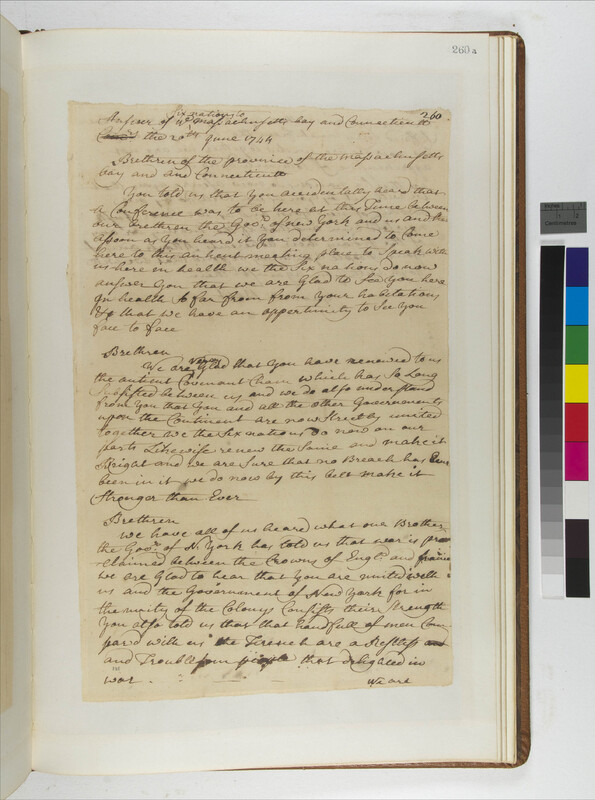 260a
260
Answer of ye six nations to Massachusetts bay and Connecticutt
the 20th June 1744
Brethren of the province of the Massachusetts
bay and and Connecticutt
You told us that you accidentally heard that
a Conference was to be here at this Time between
our brethren the Govr. of New York and us and that
assoon as you heard it you determined to Come
here to this antient meeting place to Speak with
us here in health we the Six nations do now
answer you that we are Glad to See you here
In health So far from from your habitations
& that we have an opportunity to See you
face to face
Brethren
We are very Glad that You have renewed to us
the antient Covenant Chain which has So Long
Subsisted between us and we do also understand
from you that you and all the other Governments
upon the Continent are now Strictly united
together We the Six nations do now on our
parts Likewise renew the Same and make it
Bright and we are Sure that no Breach has Ever
been in it we do now by this belt make it
Stronger than Ever
Brethren
we have all of us heard what our Brother
the Govr. of N York has told us that war is pro
claimed between the Crowns of Engld. and france
we are Glad to hear that you are united with
us and the Government of New York for in
the unity of the Colonys Consists their Strength
You also told us that that handfull of men Com
par'd with us the French are a Restless
and Troublesome people that delighted in
war
We are